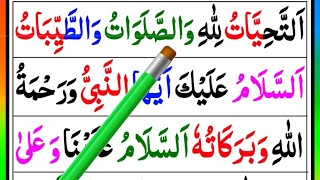 اَلتَّحِيَّاتُ لِلّٰهِ وَالصَّلَوَاتُ وَالطَّيِّبَاتُ
اَلسَّلَامُ عَلَيْكَ اَيُّهَا النَّبِيُّ وَرَحْمَةُ
اللّٰهِ وَبَرَكَاتُهٗ اَلسَّلَامُ عَلَيْنَا وَ عَلٰى